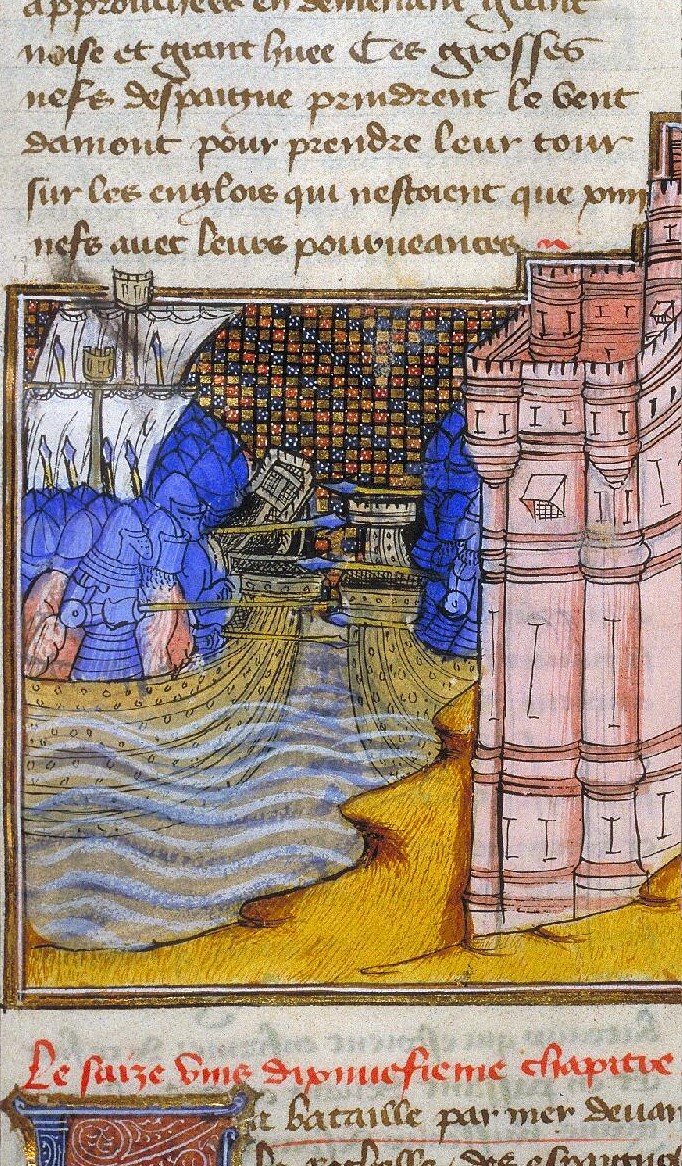 approuchees en demenant grant
noise et grant huee Ces grosses
nefs despaigne prindrent le vent
damont pour prendre leur tour
sur les englois qui nestoient que xiiii
nefs auec leurs pourueances
Le saize vins dixneufieme chapitre
bataille par mer deuan
la rochelle des espaignol